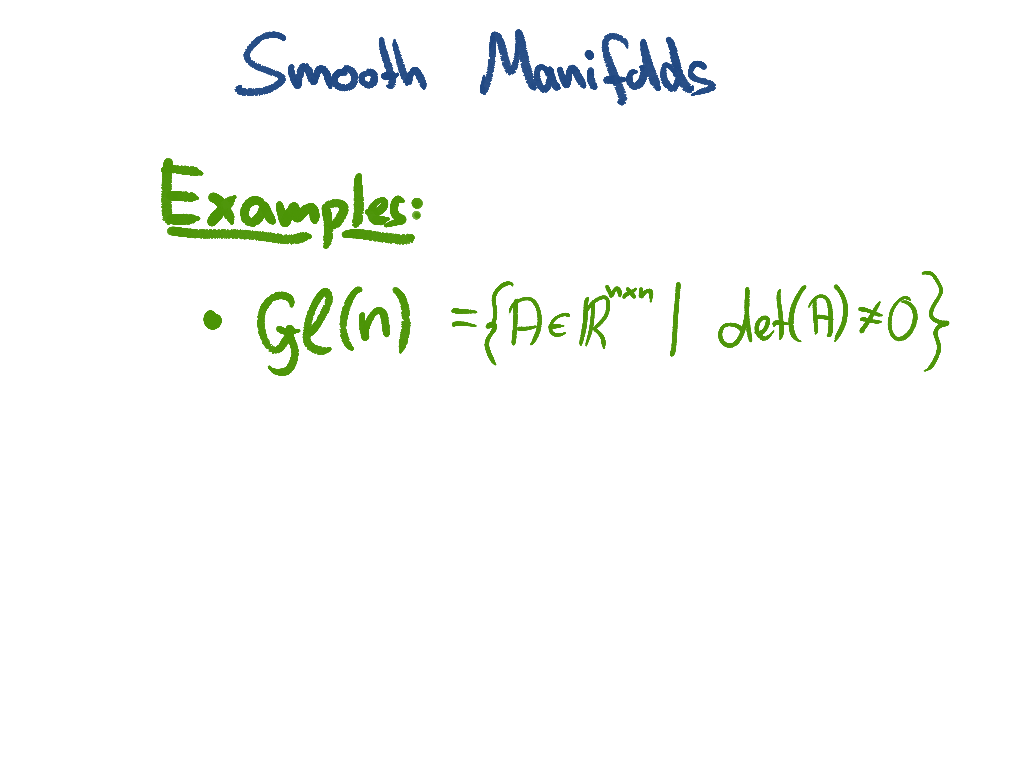 Smooth Manifolds
Examples:
• Gl(n) = {A ∈ ℝ^{n×n} | det(A) ≠ 0}